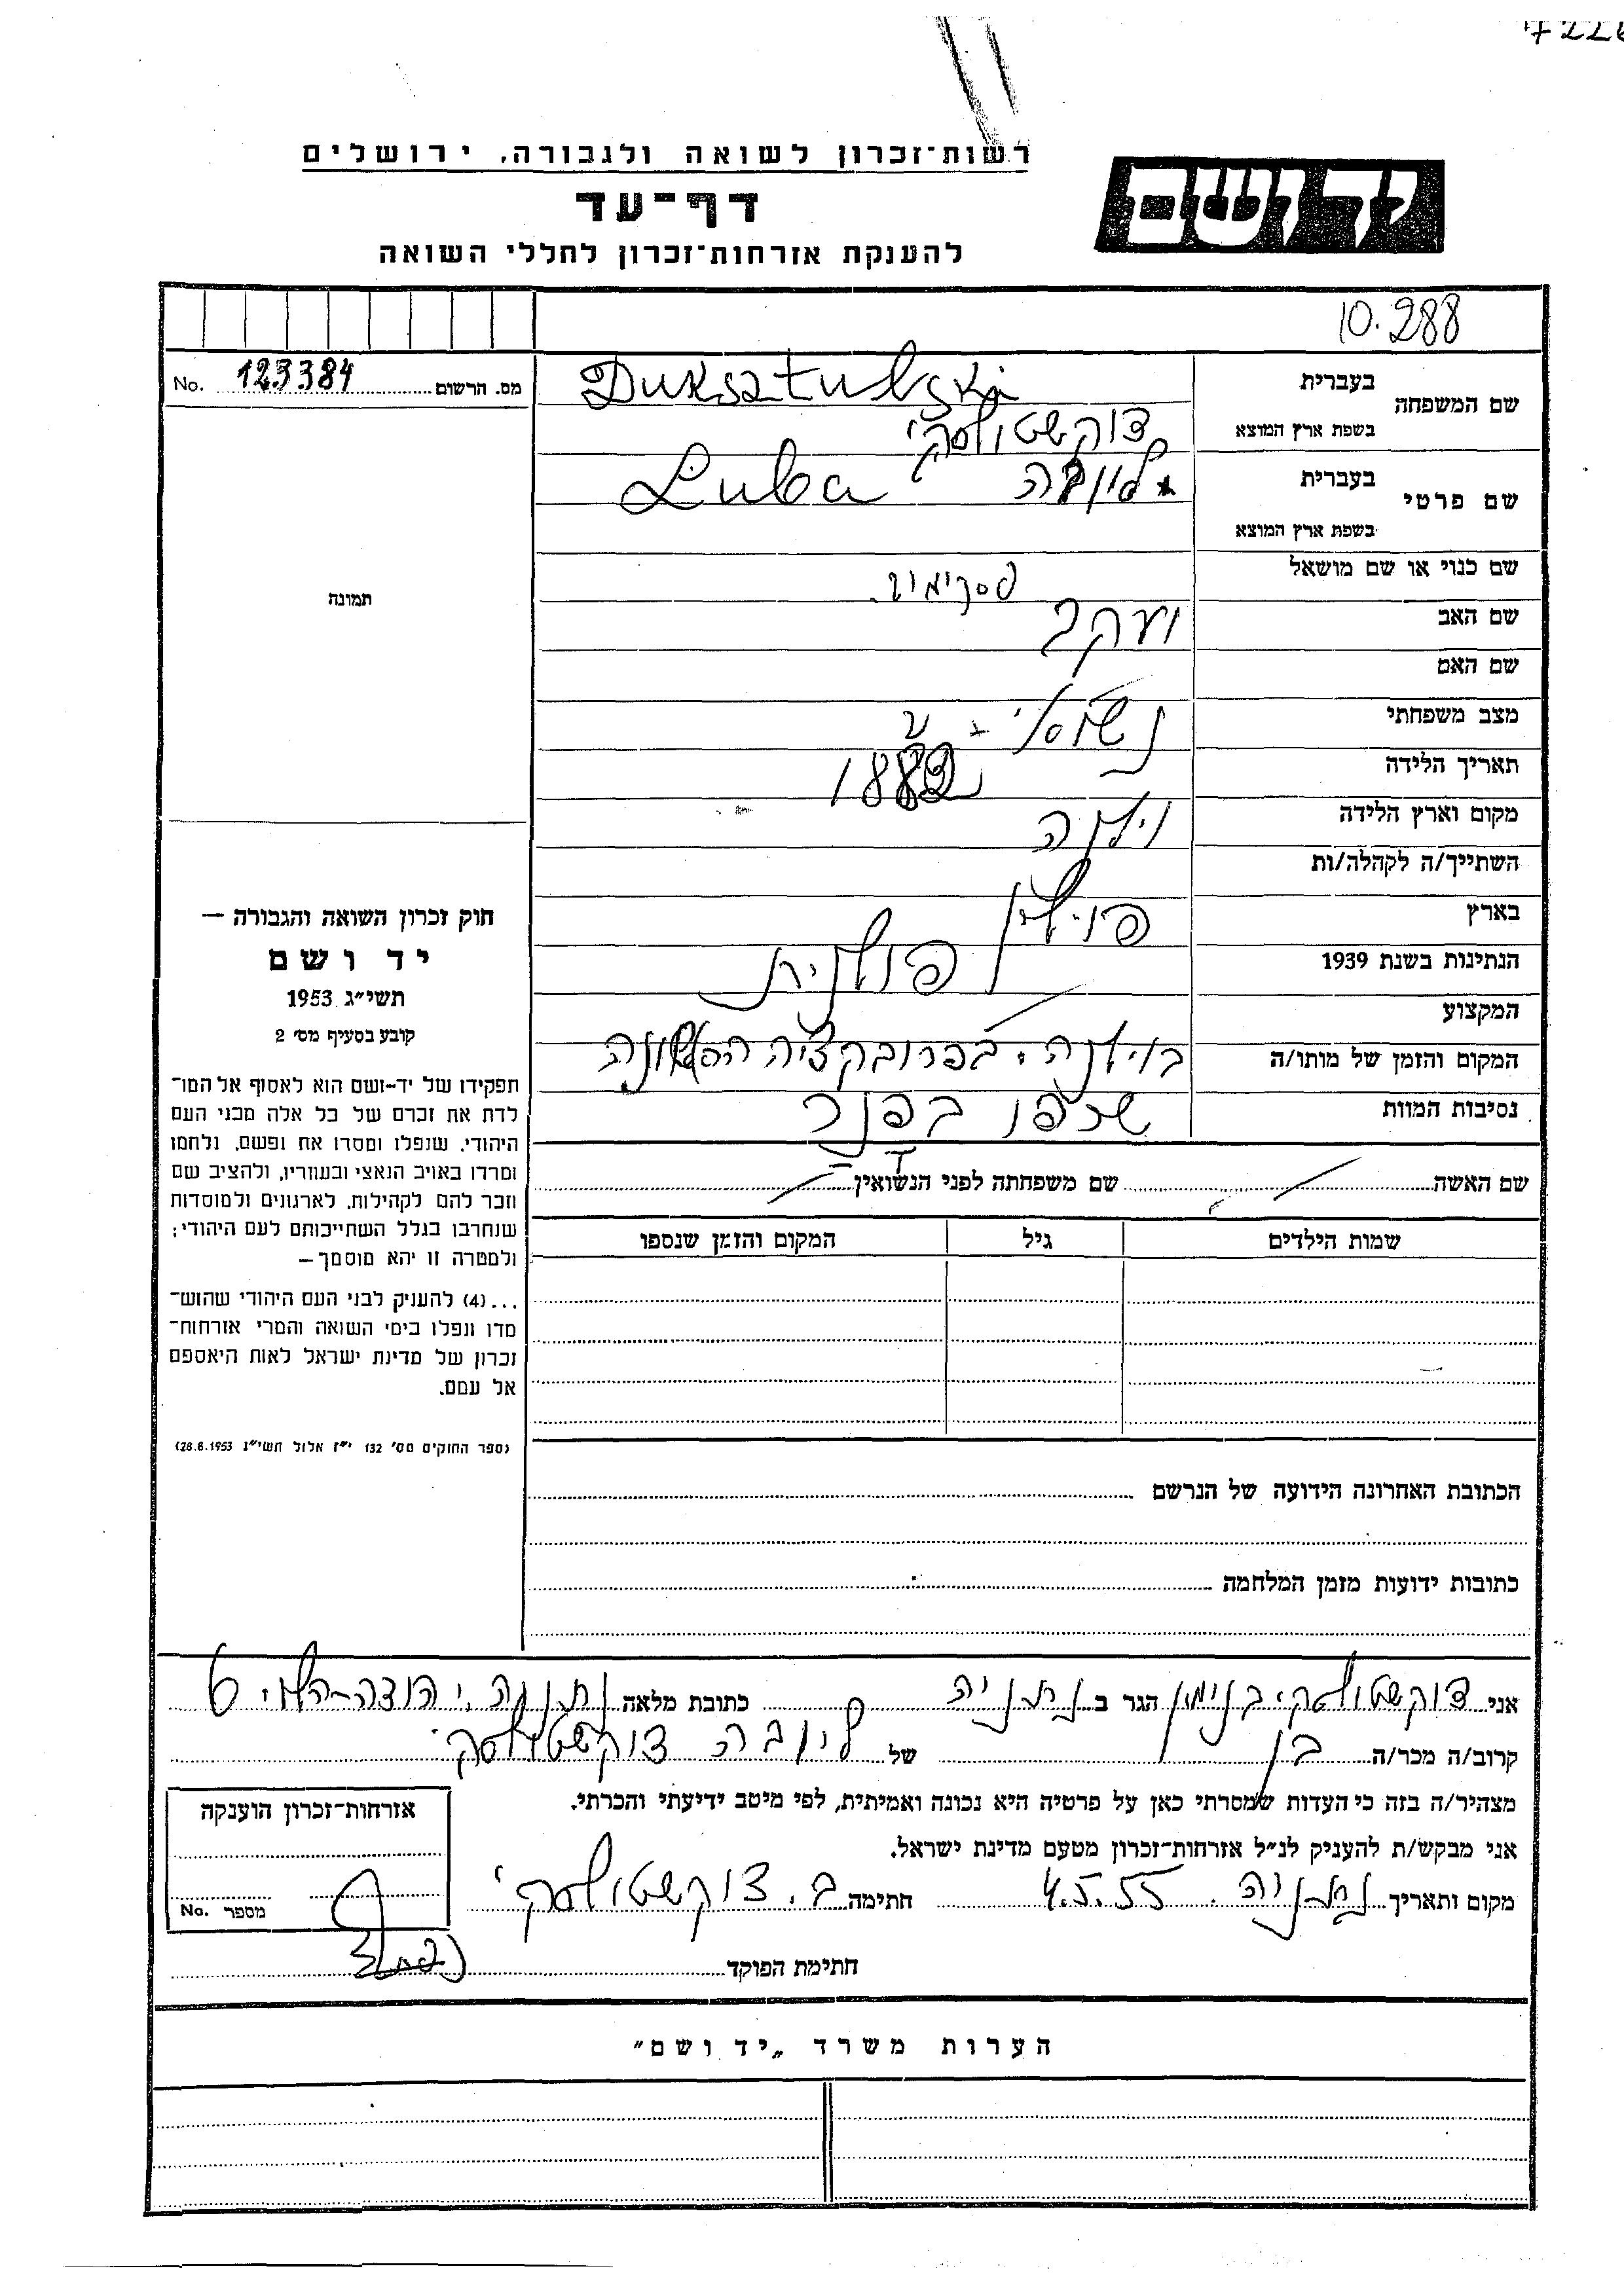 רשות־זכרון לשואה ולגבורה, ירושלים
יד ושם
דף־עד
להענקת אזרחות־זכרון לחללי השואה
10.288
מס. הרשום 123384 No.
תמונה
שם המשפחה בעברית Duksztulski
בשפת ארץ המוצא דוקשטולסקי
שם פרטי בעברית ליובה Luba
בשפת ארץ המוצא
שם כנוי או שם מושאל
שם האב יעקב
שם האם
מצב משפחתי
תאריך הלידה 1882
מקום וארץ הלידה וילנה
השתייך/ה לקהלה/ות
בארץ פולין
הנתינות בשנת 1939 פולנית
המקצוע
המקום והזמן של מותו/ה בוילנה, בפרובקציה הראשונה
נסיבות המוות נספו בפונר
שם האשה שם משפחתה לפני הנשואין
שמות הילדים גיל המקום והזמן שנספו
הכתובת האחרונה הידועה של הנרשם
כתובות ידועות מזמן המלחמה
חוק זכרון השואה והגבורה —
יד ושם
תשי״ג 1953
קובע בסעיף מס׳ 2
תפקידו של יד-ושם הוא לאסוף אל המו־
לדת את זכרם של כל אלה מבני העם
היהודי, שנפלו ומסרו את נפשם, נלחמו
ומרדו באויב הנאצי ובעוזריו, ולהציב שם
וזכר להם לקהילות, לארגונים ולמוסדות
שנחרבו בגלל השתייכותם לעם היהודי;
ולמטרה זו יהא מוסמך—
...(4) להעניק לבני העם היהודי שהוש־
מדו ונפלו בימי השואה והמרי אזרחות־
זכרון של מדינת ישראל לאות היאספם
אל עמם.
(ספר החוקים מס׳ 132 י״ז אלול תשי״ג 28.8.1953)
אני דוקשטולסקי בנימין הגר ב נתניה כתובת מלאה נתניה, יהודה-הלוי 6
קרוב/ה מכר/ה בן של ליובה דוקשטולסקי
מצהיר/ה בזה כי העדות שמסרתי כאן על פרטיה היא נכונה ואמיתית, לפי מיטב ידיעתי והכרתי.
אני מבקש/ת להעניק לנ״ל אזרחות־זכרון מטעם מדינת ישראל.
מקום ותאריך נתניה 4.5.55 חתימה ב. דוקשטולסקי
חתימת הפוקד
אזרחות־זכרון הוענקה
מספר No.
הערות משרד „יד ושם״